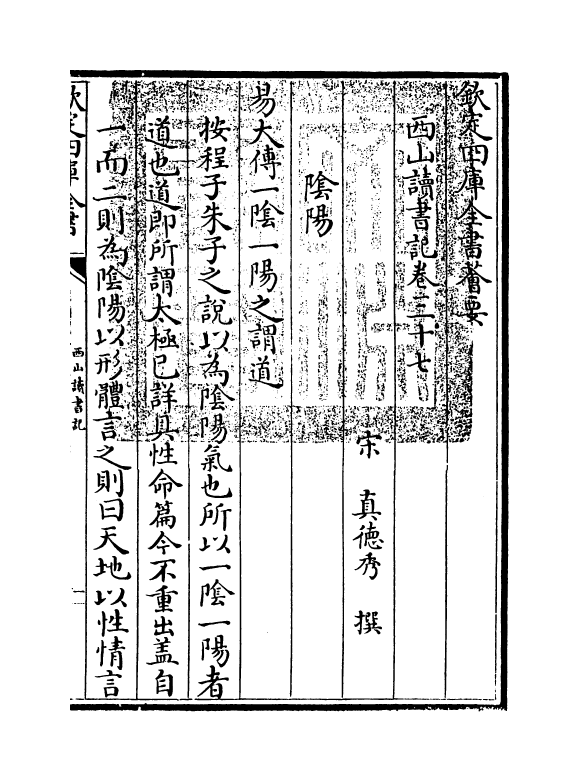 欽定四庫全書薈要
西山讀書記卷三十七
宋　真德秀　撰
陰陽
易大傳一陰一陽之謂道
按程子朱子之說以為陰陽氣也所以一陰一陽者
道也道即所謂太極已詳具性命篇今不重出盖自
一而二則為陰陽以形體言之則曰天地以性情言
欽定四庫全書
西山讀書記